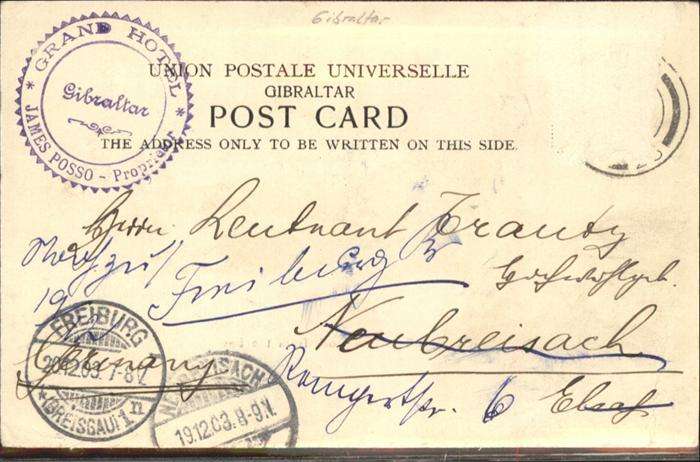 Gibraltar
GRAND HOTEL
Gibraltar
JAMES POSSO - Proprietor
UNION POSTALE UNIVERSELLE
GIBRALTAR
POST CARD
THE ADDRESS ONLY TO BE WRITTEN ON THIS SIDE.
Herrn Leutnant Trautz
Hochwohlgeb.
Freiburg
Neubreisach
Elsaß
Germany
FREIBURG
(BREISGAU) 1 n
19.12.03. 8-9.N.